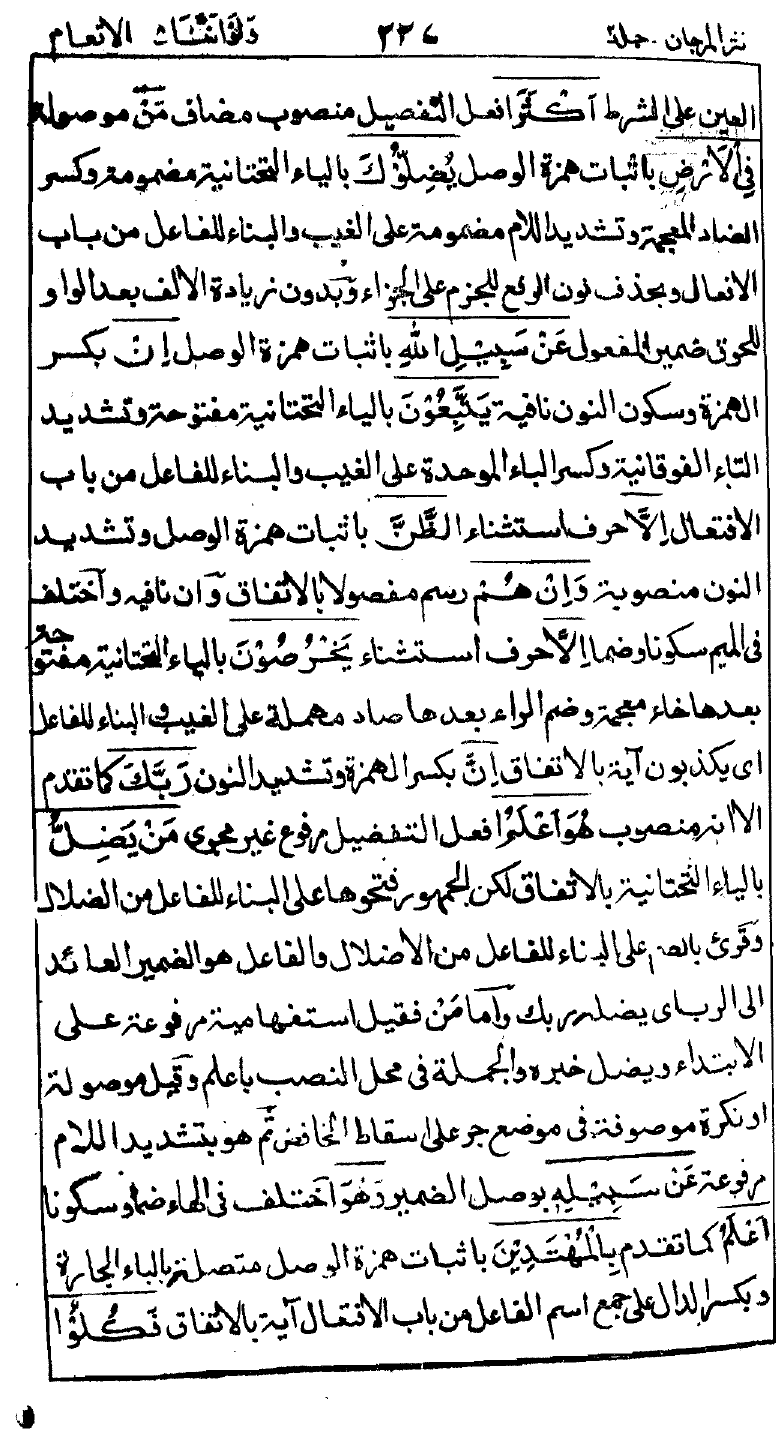 نثر المرجان - جملة ٢٢٧ ولواننا الانعام
العين على الشرط أَكْثَرَ افعل التفضيل منصوب مضاف مَنْ موصولة
فِي الْأَرْضِ باثبات همزة الوصل يُضِلُّوْكَ بالياء التحتانية مضمومة وكسر
الضاد المعجمة وتشديد اللام مضمومة على الغيب والبناء للفاعل من باب
الافعال وبحذف نون الرفع للجزم على الجزاء وبدون زيادة الالف بعد الواو
للحوق ضمير المفعول عَنْ سَبِيْلِ اللهِ باثبات همزة الوصل اِنْ بكسر
الهمزة وسكون النون نافية يَتَّبِعُوْنَ بالياء التحتانية مفتوحة وتشديد
التاء الفوقانية وكسر الباء الموحدة على الغيب والبناء للفاعل من باب
الافتعال اِلَّا حرف استثناء الظَّنَّ باثبات همزة الوصل وتشديد
النون منصوبة وَاِنْ هُمْ رسم مفصولا بالاتفاق وان نافيه واختلف
فى الميم سكونا وضما اِلَّا حرف استثناء يَخْرُصُوْنَ بالياء التحتانية مفتوحة
بعدها خاء معجمة وضم الراء بعدها صاد مهملة على الغيب والبناء للفاعل
اى يكذبون آية بالاتفاق اِنَّ بكسر الهمزة وتشديد النون رَبَّكَ كما تقدم
الا انه منصوب هُوَ اَعْلَمُ افعل التفضيل مرفوع غير مجرى مَنْ يَضِلُّ
بالياء التحتانية بالاتفاق لكن الجمهور فتحوها على البناء للفاعل من الضلال
وقرئ بالضم على البناء للفاعل من الاضلال والفاعل هو الضمير العائد
الى الرب اى يضله ربك واما مَنْ فقيل استفهامية مرفوعة على
الابتداء ويضل خبره والجملة فى محل النصب باعلم وقيل موصولة
او نكرة موصوفة فى موضع جر على اسقاط الخافض ثم هو بتشديد اللام
مرفوعة عَنْ سَبِيْلِهِ بوصل الضمير وَهُوَ اختلف فى الهاء ضما وسكونا
اَعْلَمُ كما تقدم بِالْمُهْتَدِيْنَ باثبات همزة الوصل متصلة بالباء الجارة
وبكسر الدال على جمع اسم الفاعل من باب الافتعال آية بالاتفاق فَكُلُوْا